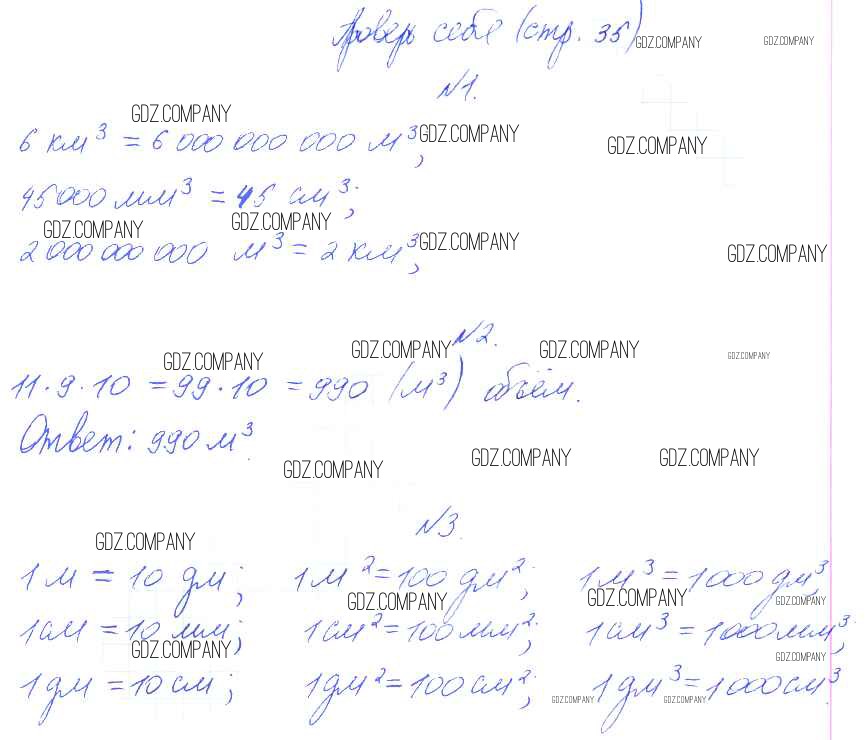 Проверь себя (стр. 35)
GDZ.COMPANY GDZ.COMPANY
№1.
GDZ.COMPANY
6 км³ = 6 000 000 000 м³;
GDZ.COMPANY GDZ.COMPANY
45000 мм³ = 45 см³;
GDZ.COMPANY GDZ.COMPANY
2 000 000 000 м³ = 2 км³;
GDZ.COMPANY GDZ.COMPANY
№2.
GDZ.COMPANY GDZ.COMPANY GDZ.COMPANY GDZ.COMPANY
11·9·10 = 99·10 = 990 (м³) объём.
Ответ: 990 м³.
GDZ.COMPANY GDZ.COMPANY GDZ.COMPANY
№3.
GDZ.COMPANY
1 м = 10 дм; 1 м² = 100 дм²; 1 м³ = 1000 дм³,
GDZ.COMPANY GDZ.COMPANY GDZ.COMPANY
1 см = 10 мм; 1 см² = 100 мм²; 1 см³ = 1000 мм³;
GDZ.COMPANY GDZ.COMPANY
1 дм = 10 см; 1 дм² = 100 см²; 1 дм³ = 1000 см³.
GDZ.COMPANY GDZ.COMPANY